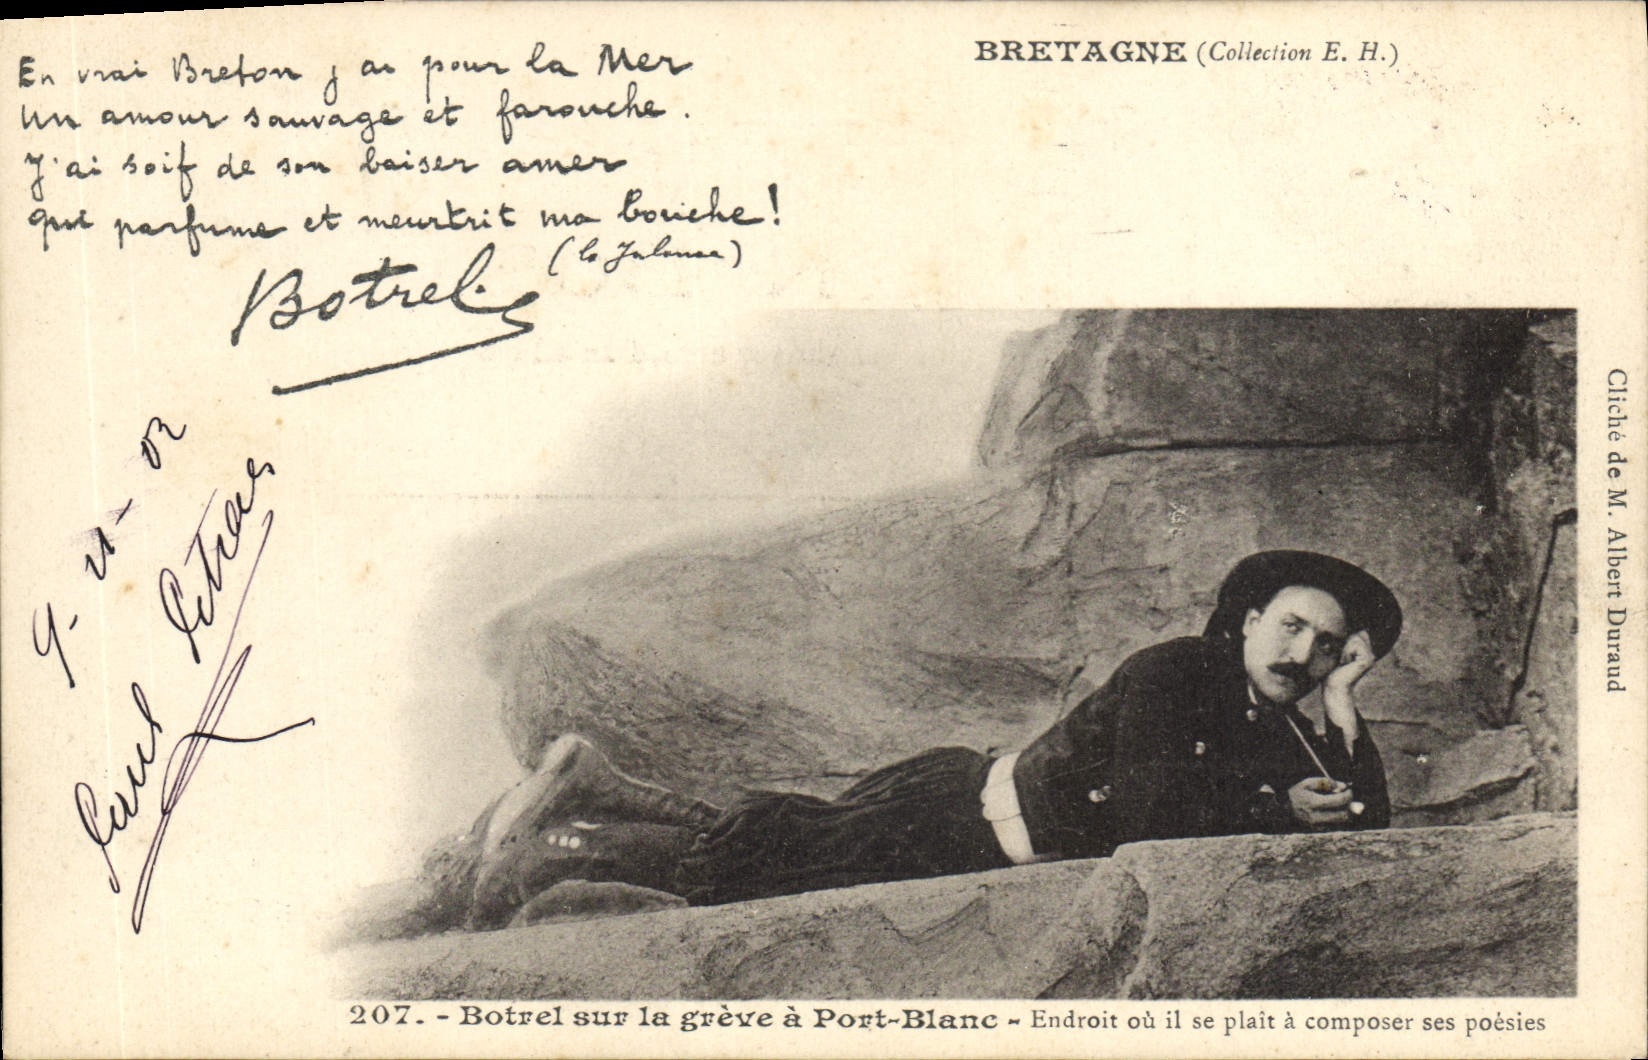 En vrai Breton j'ai pour la Mer
Un amour sauvage et farouche.
J'ai soif de son baiser amer
qui parfume et meurtrit ma bouche!
(la Jalouse)
Botrel
BRETAGNE (Collection E. H.)
Cliché de M. Albert Duraud
207. - Botrel sur la grève à Port-Blanc - Endroit où il se plaît à composer ses poésies